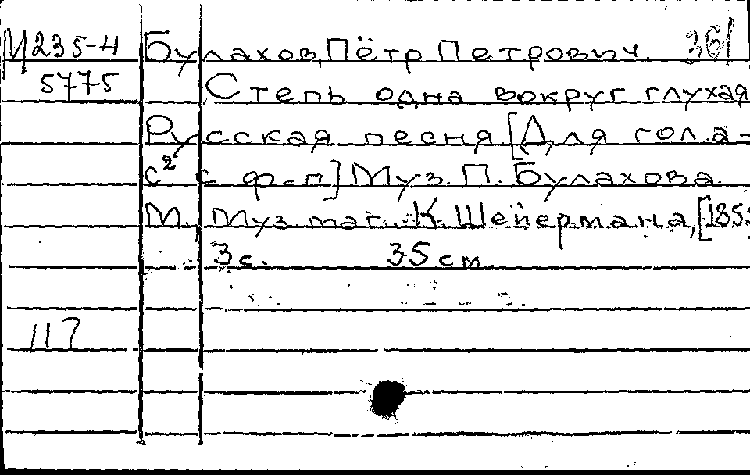 Ц 235-4 Булахов, Пётр Петрович. 361
5775 Степь одна вокруг глухая
Русская песня [Для гол. а-
с² с ф-п] Муз. П. Булахова
М. Муз. маг. К. Шейермана, [185
3 с. 35 см
117